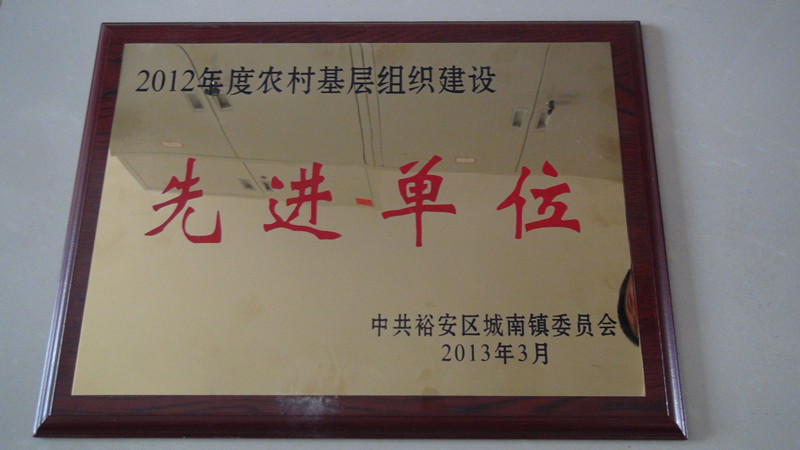 2012年度农村基层组织建设
先进单位
中共裕安区城南镇委员会
2013年3月